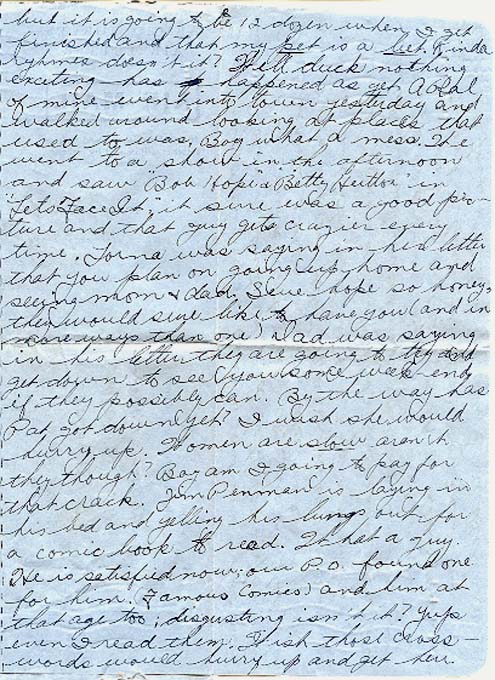 but it is going to be 12 dozen when I get
finished and that my pet is a bet. Kinda
rhymes doesn't it? Well duck nothing
exciting has happened as yet. A Pal
of mine went into town yesterday and
walked around looking at places that
used to was. Boy what a mess. He
went to a show in the afternoon
and saw "Bob Hope & Betty Hutton" in
"Lets Face It," it sure was a good pic-
ture and that guy gets crazier every
time. was saying in his letter
that you plan on going up home and
seeing mom & dad. I sure hope so honey,
they would sure like to have you (and in
more ways than one) Dad was saying
in his letter they are going to try and
get down to see you some week end
if they possibly can. By the way has
Pat got down yet? I wish she would
hurry up. Women are slow aren't
they though? Boy am I going to pay for
that crack. Jim Penman is laying in
his bed and yelling his lungs out for
a comic book to read. What a guy.
He is satisfied now, our P.O. found one
for him (Famous Comics) and him at
that age too, disgusting isn't it? Yups
even I read them. Wish those cross-
words would hurry up and get here.